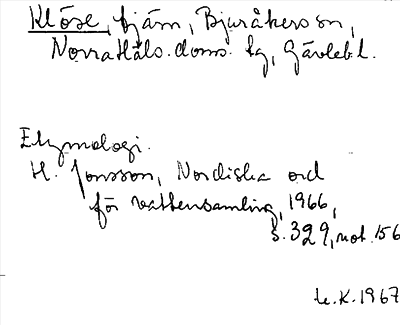 Klöse, tjärn, Bjuråkers sn,
Norra Häls. doms. lg, Gävleb. l.
Etymologi.
H. Jonsson, Nordiska ord
för vattensamling, 1966,
s. 329, not. 156
L.K. 1967